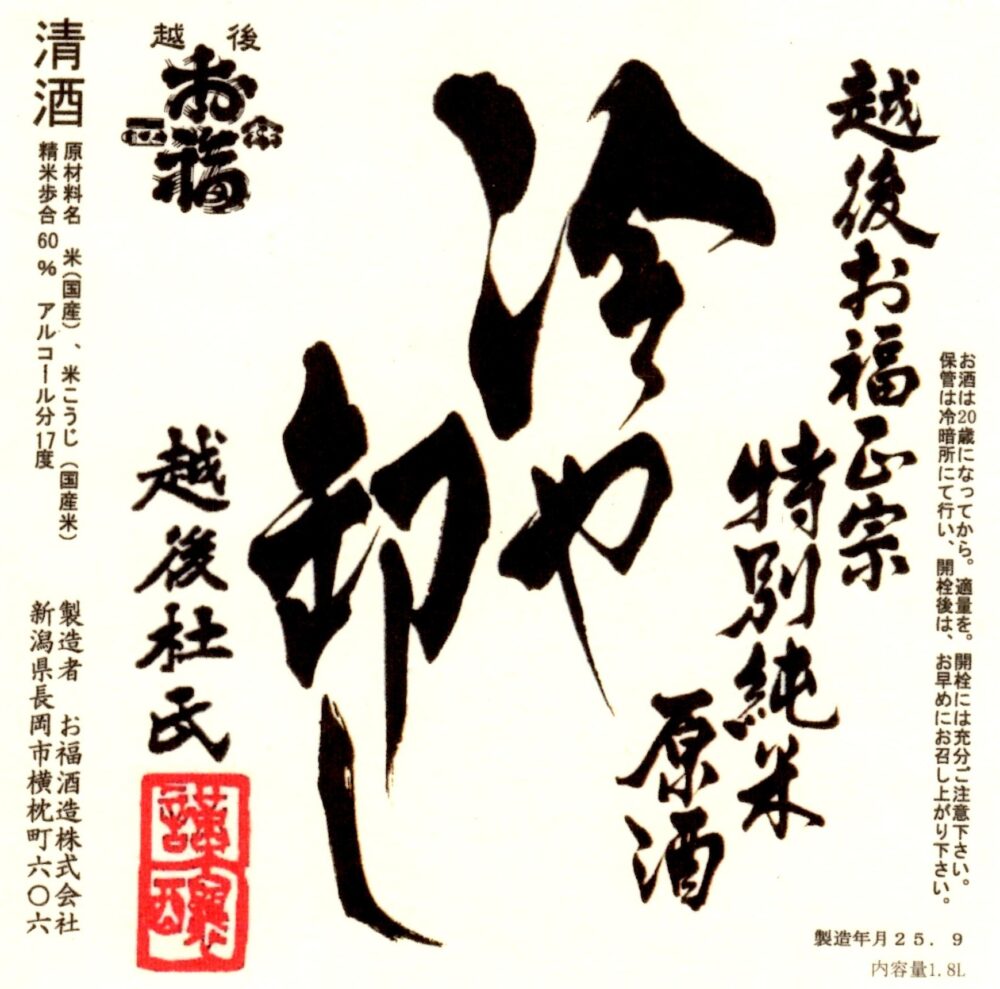 お酒は20歳になってから。適量を。開栓には充分ご注意下さい。
保管は冷暗所にて行い、開栓後は、お早めにお召し上がり下さい。
越後お福正宗
特別純米
原酒
冷や
卸し
越後
お福
正宗
越後杜氏
謹醸
清酒
原材料名 米(国産)、米こうじ(国産米)
精米歩合60% アルコール分17度
製造者 お福酒造株式会社
新潟県長岡市横枕町六〇六
製造年月25.9
内容量1.8L